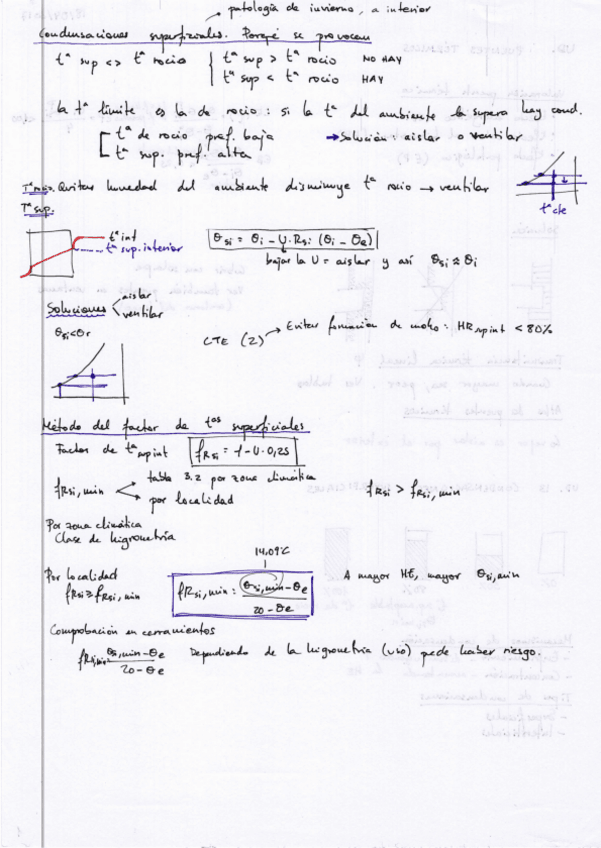 patología de invierno, a interior
Condensaciones superficiales. Porqué se provocan
tª sup <> tª rocio { tª sup > tª rocio NO HAY
tª sup < tª rocio HAY
la tª límite es la de rocio: si la tª del ambiente la supera hay cond.
tª de rocio pref. baja → Solución: aislar o ventilar
tª sup. pref. alta
Quitar humedad del ambiente disminuye tª rocio → ventilar
tª cte
Tª sup:
tª int
tª sup. interior
θsi = θi - U·Rsi (θi - θe)
bajar la U = aislar y así θsi ≈ θi
Soluciones < aislar
ventilar
θsi<θr
CTE (2) → Evitar formación de moho: HR sup int < 80%
Método del factor de tas superficiales
Factor de tª sup int fRsi = 1-U·0,25
fRsi,min < tabla 3.2 por zona climática
por localidad
fRsi > fRsi,min
Por zona climática
Clase de higrometría
14,09ºC
Por localidad
fRsi ≥ fRsi,min
fRsi,min: θsi,min-θe / 20-θe
A mayor HE, mayor θsi,min
Comprobación en cerramientos
fRsi,min= θsi,min-θe / 20-θe Dependiendo de la higrometría (uso) puede haber riesgo.